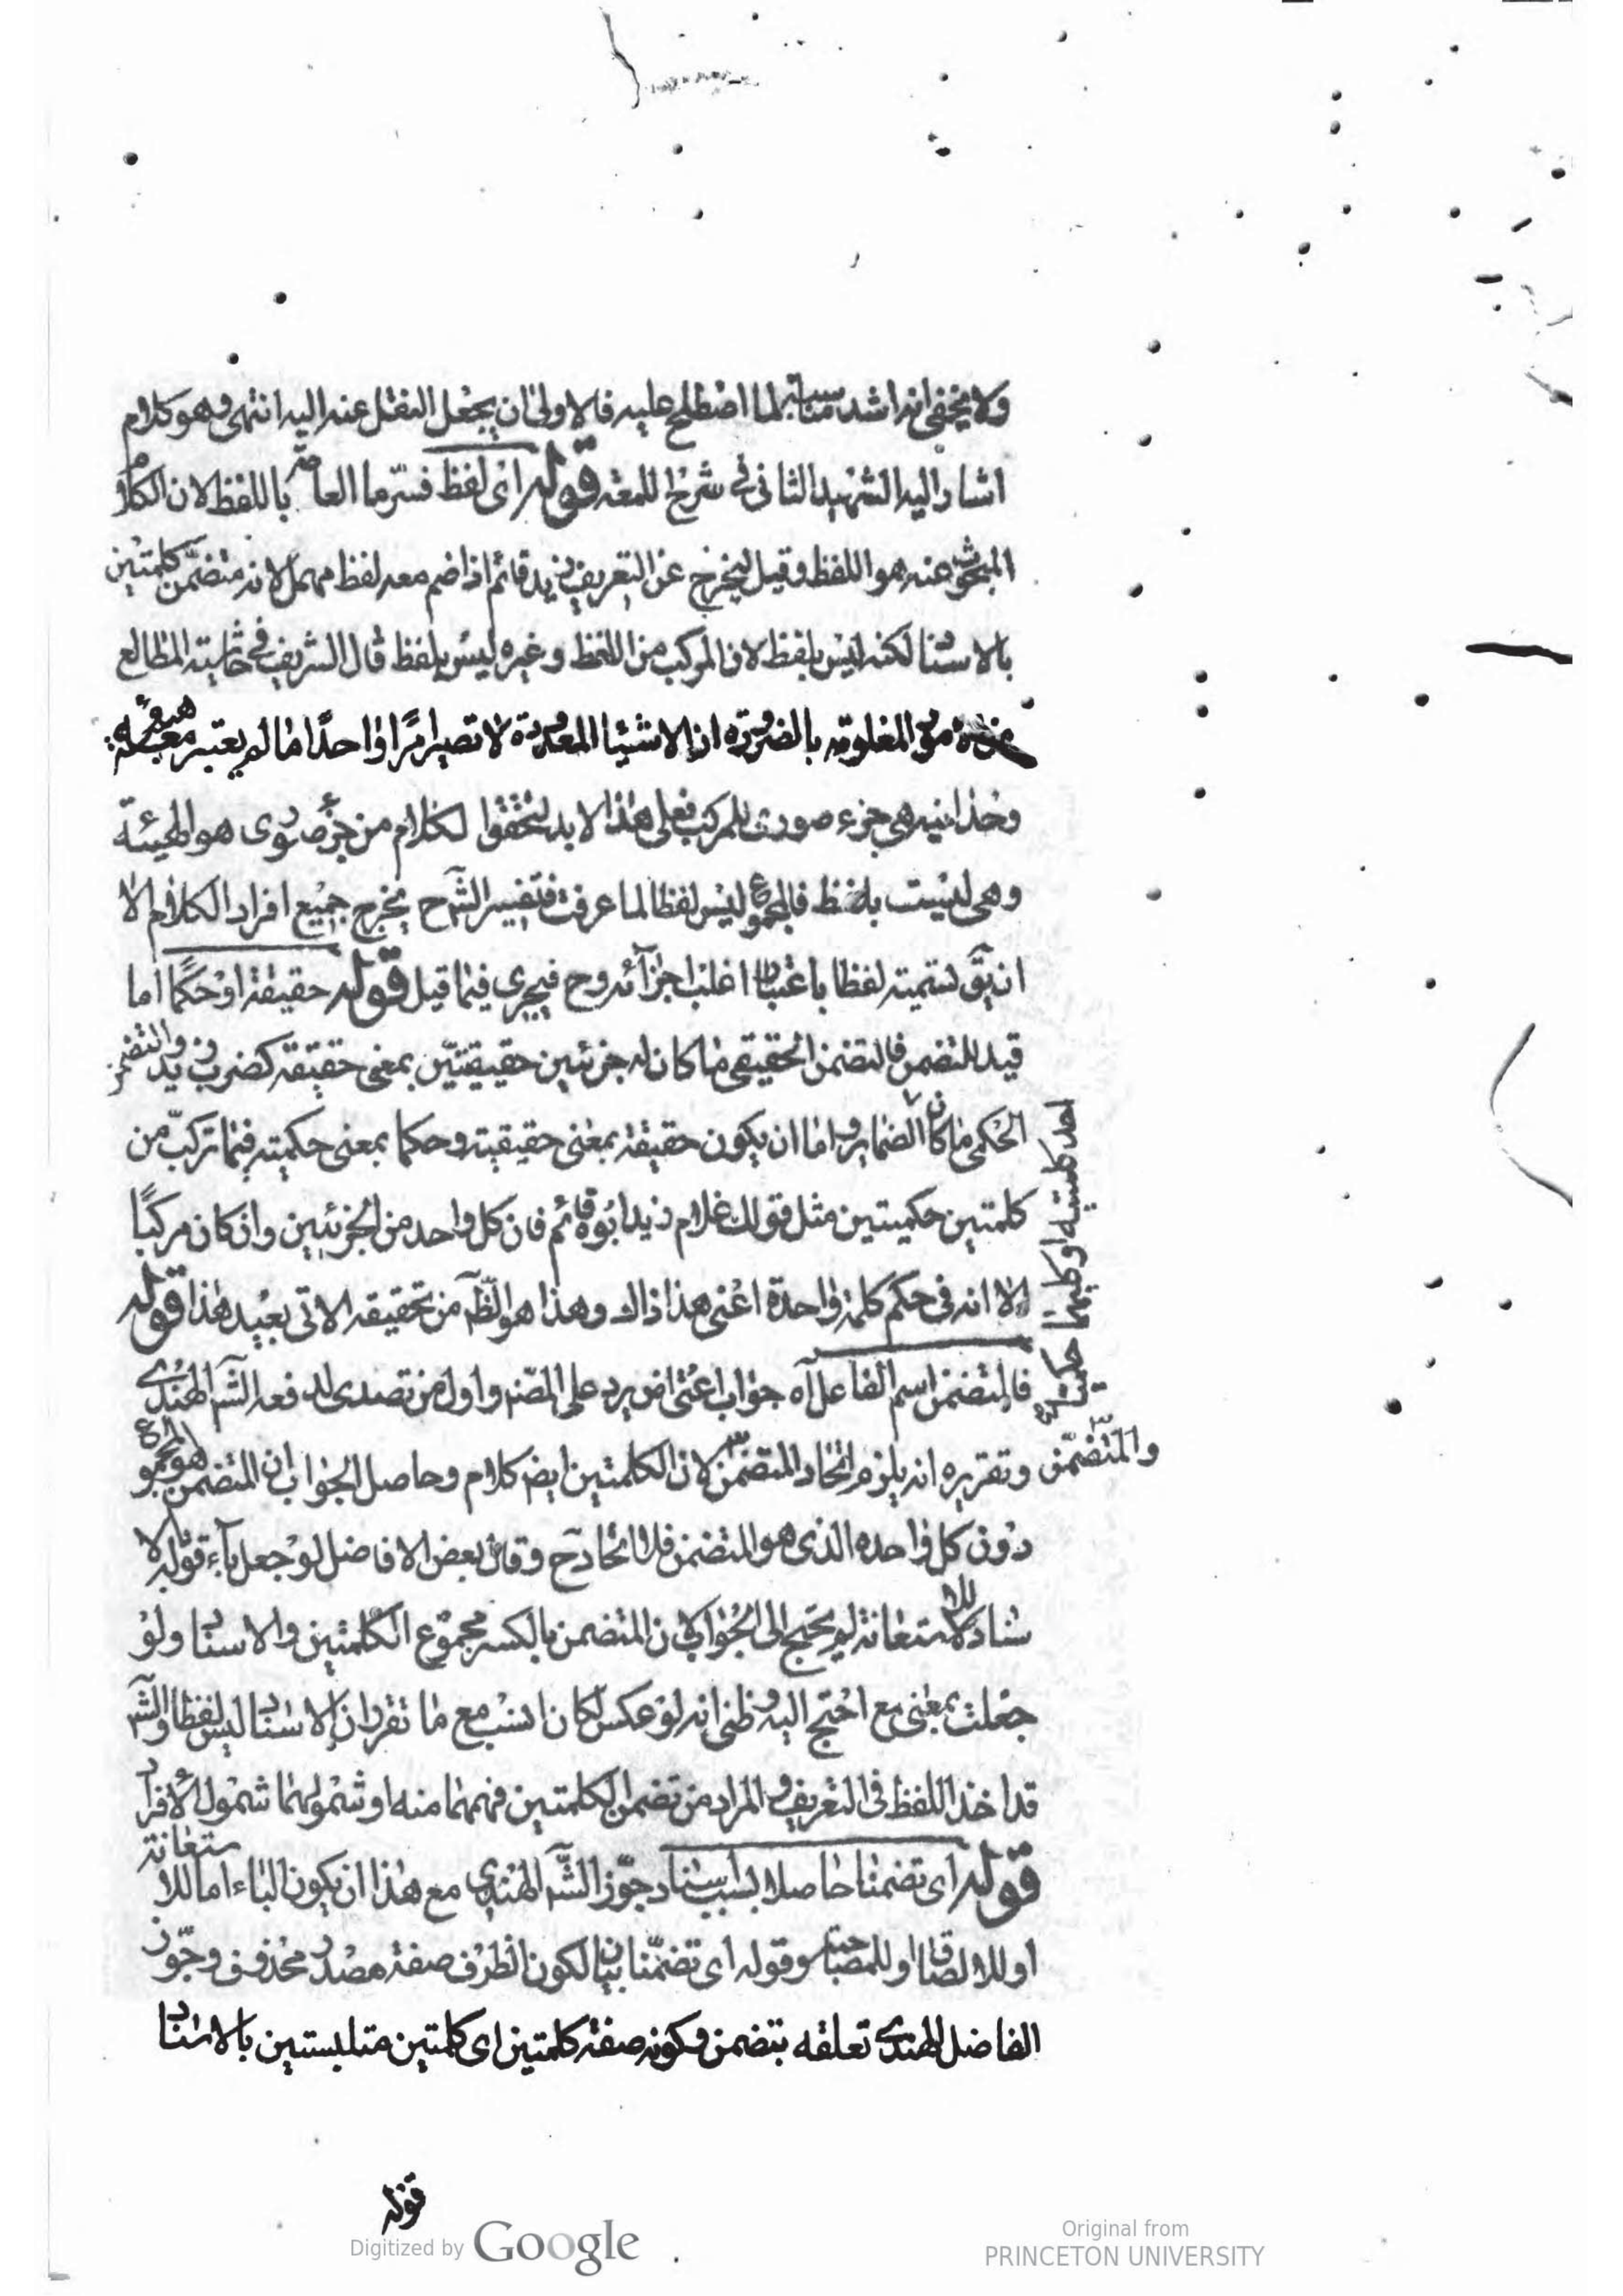 ولا يخفى انه اشد مناسبة لما اصطلح عليه فالاولى ان يجعل النقل عنه اليه انتهى وهو كلام
اشار اليه الشهيد الثانى فى شرح اللمعه قوله اى لفظ فسر ما العام باللفظ لان الكلام
المبحوث عنه هو اللفظ وقيل ليخرج عن التعريف زيد قائم اذا ضم معه لفظ مهمل لانه متضمن كلمتين
بالاسنا لكنه ليس بلفظ لان المركب من اللفظ وغيره ليس بلفظ قال الشريف فى حاشيته المطالع
من المعلومة بالضرورة ان الاشيئا المعدودة لا تصير امرًا واحدًا ما لم يعتبر معها هيئة
وحدانيه هى جزء صورى للمركب فعلى هذا لا بد لتحقق الكلام من جزء صورى هو الهيئة
وهى ليست بلفظ فالمجموع ليس لفظا لما عرفت فتفسير الشرح يخرج جميع افراد الكلام الا
ان يق تسميته لفظا باعتبار اغلب اجزآئه وح فيجرى فيما قيل قوله حقيقة او حكمًا اما
قيد للتضمن فالتضمن الحقيقى ما كان له جزئين حقيقيتين بمعنى حقيقة كضرب زيد والتضمن
الحكمى ما كان الضماير واما ان يكون حقيقة بمعنى حقيقية وحكما بمعنى حكمية فيما تركب من
احد كلمتيه او كليهما حكميتين
كلمتين حكميتين مثل قولك غلام زيد ابوه قائم فان كل واحد من الجزئين وان كان مركبًا
الا انه فى حكم كلمة واحدة اعنى هذا ذاك وهذا هو الظ من تحقيقه الاتى بعيد هذا قوله
فالمتضمن اسم الفاعل آه جواب اعتراض يرد على المصنف واول من تصدى لدفعه الش الهندى
والمتضمن وتقريره انه يلزم اتحاد المتضمن لان الكلمتين ايض كلام وحاصل الجواب ان المتضمن هو المجموع
دون كل واحده الذى هو المتضمن فلا اتحاد ح وقال بعض الافاضل لو جعل بآء قوله لا
سناد للاستعانة لم يحتج الى الجواب لان المتضمن بالكسر مجموع الكلمتين والاسناد ولو
جعلت بمعنى مع احتج اليه وظنى انه لو عكس لكان انسب مع ما تقرر ان الاسناد ليس لفظا والش
قد اخذ اللفظ فى التعريف والمراد من تضمن الكلمتين فهمهما منه او شمولهما شمول الافراد
قوله اى تضمنا حاصلا بسبب اسناد جوّز الش الهندى مع هذا ان يكون الباء اما للاستعانة
او للالصاق او للمصاحبة وقوله اى تضمّنا بيان لكون الظرف صفة مصدر محذوف وجوّز
الفاضل الهندى تعلقه بتضمن وكونه صفة كلمتين اى كلمتين متلبستين بالاسناد
قوله
Digitized by Google
Original from
PRINCETON UNIVERSITY